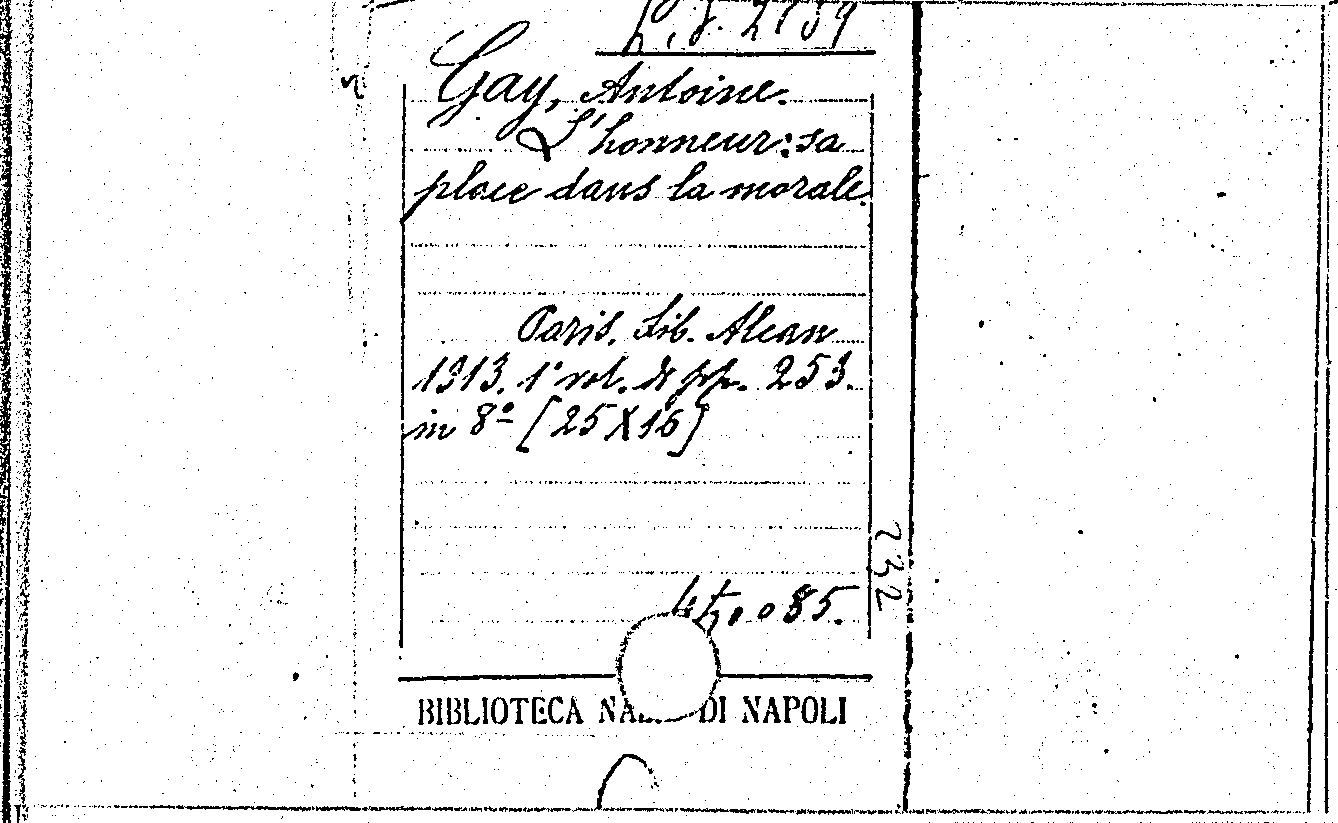 Gay, Antoine.
L'honneur: sa
place dans la morale.
Paris. Lib. Alcan
1913. 1° vol. di pp. 253.
in 8º [25X16]
085.
232
BIBLIOTECA DI NAPOLI